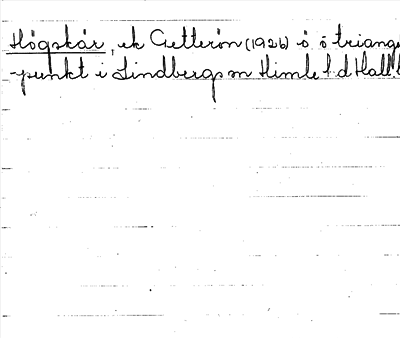 Högskär, ek Getterön (1926) ö ö triang
-punkt i Lindbergs sn Himle hd Hall. l